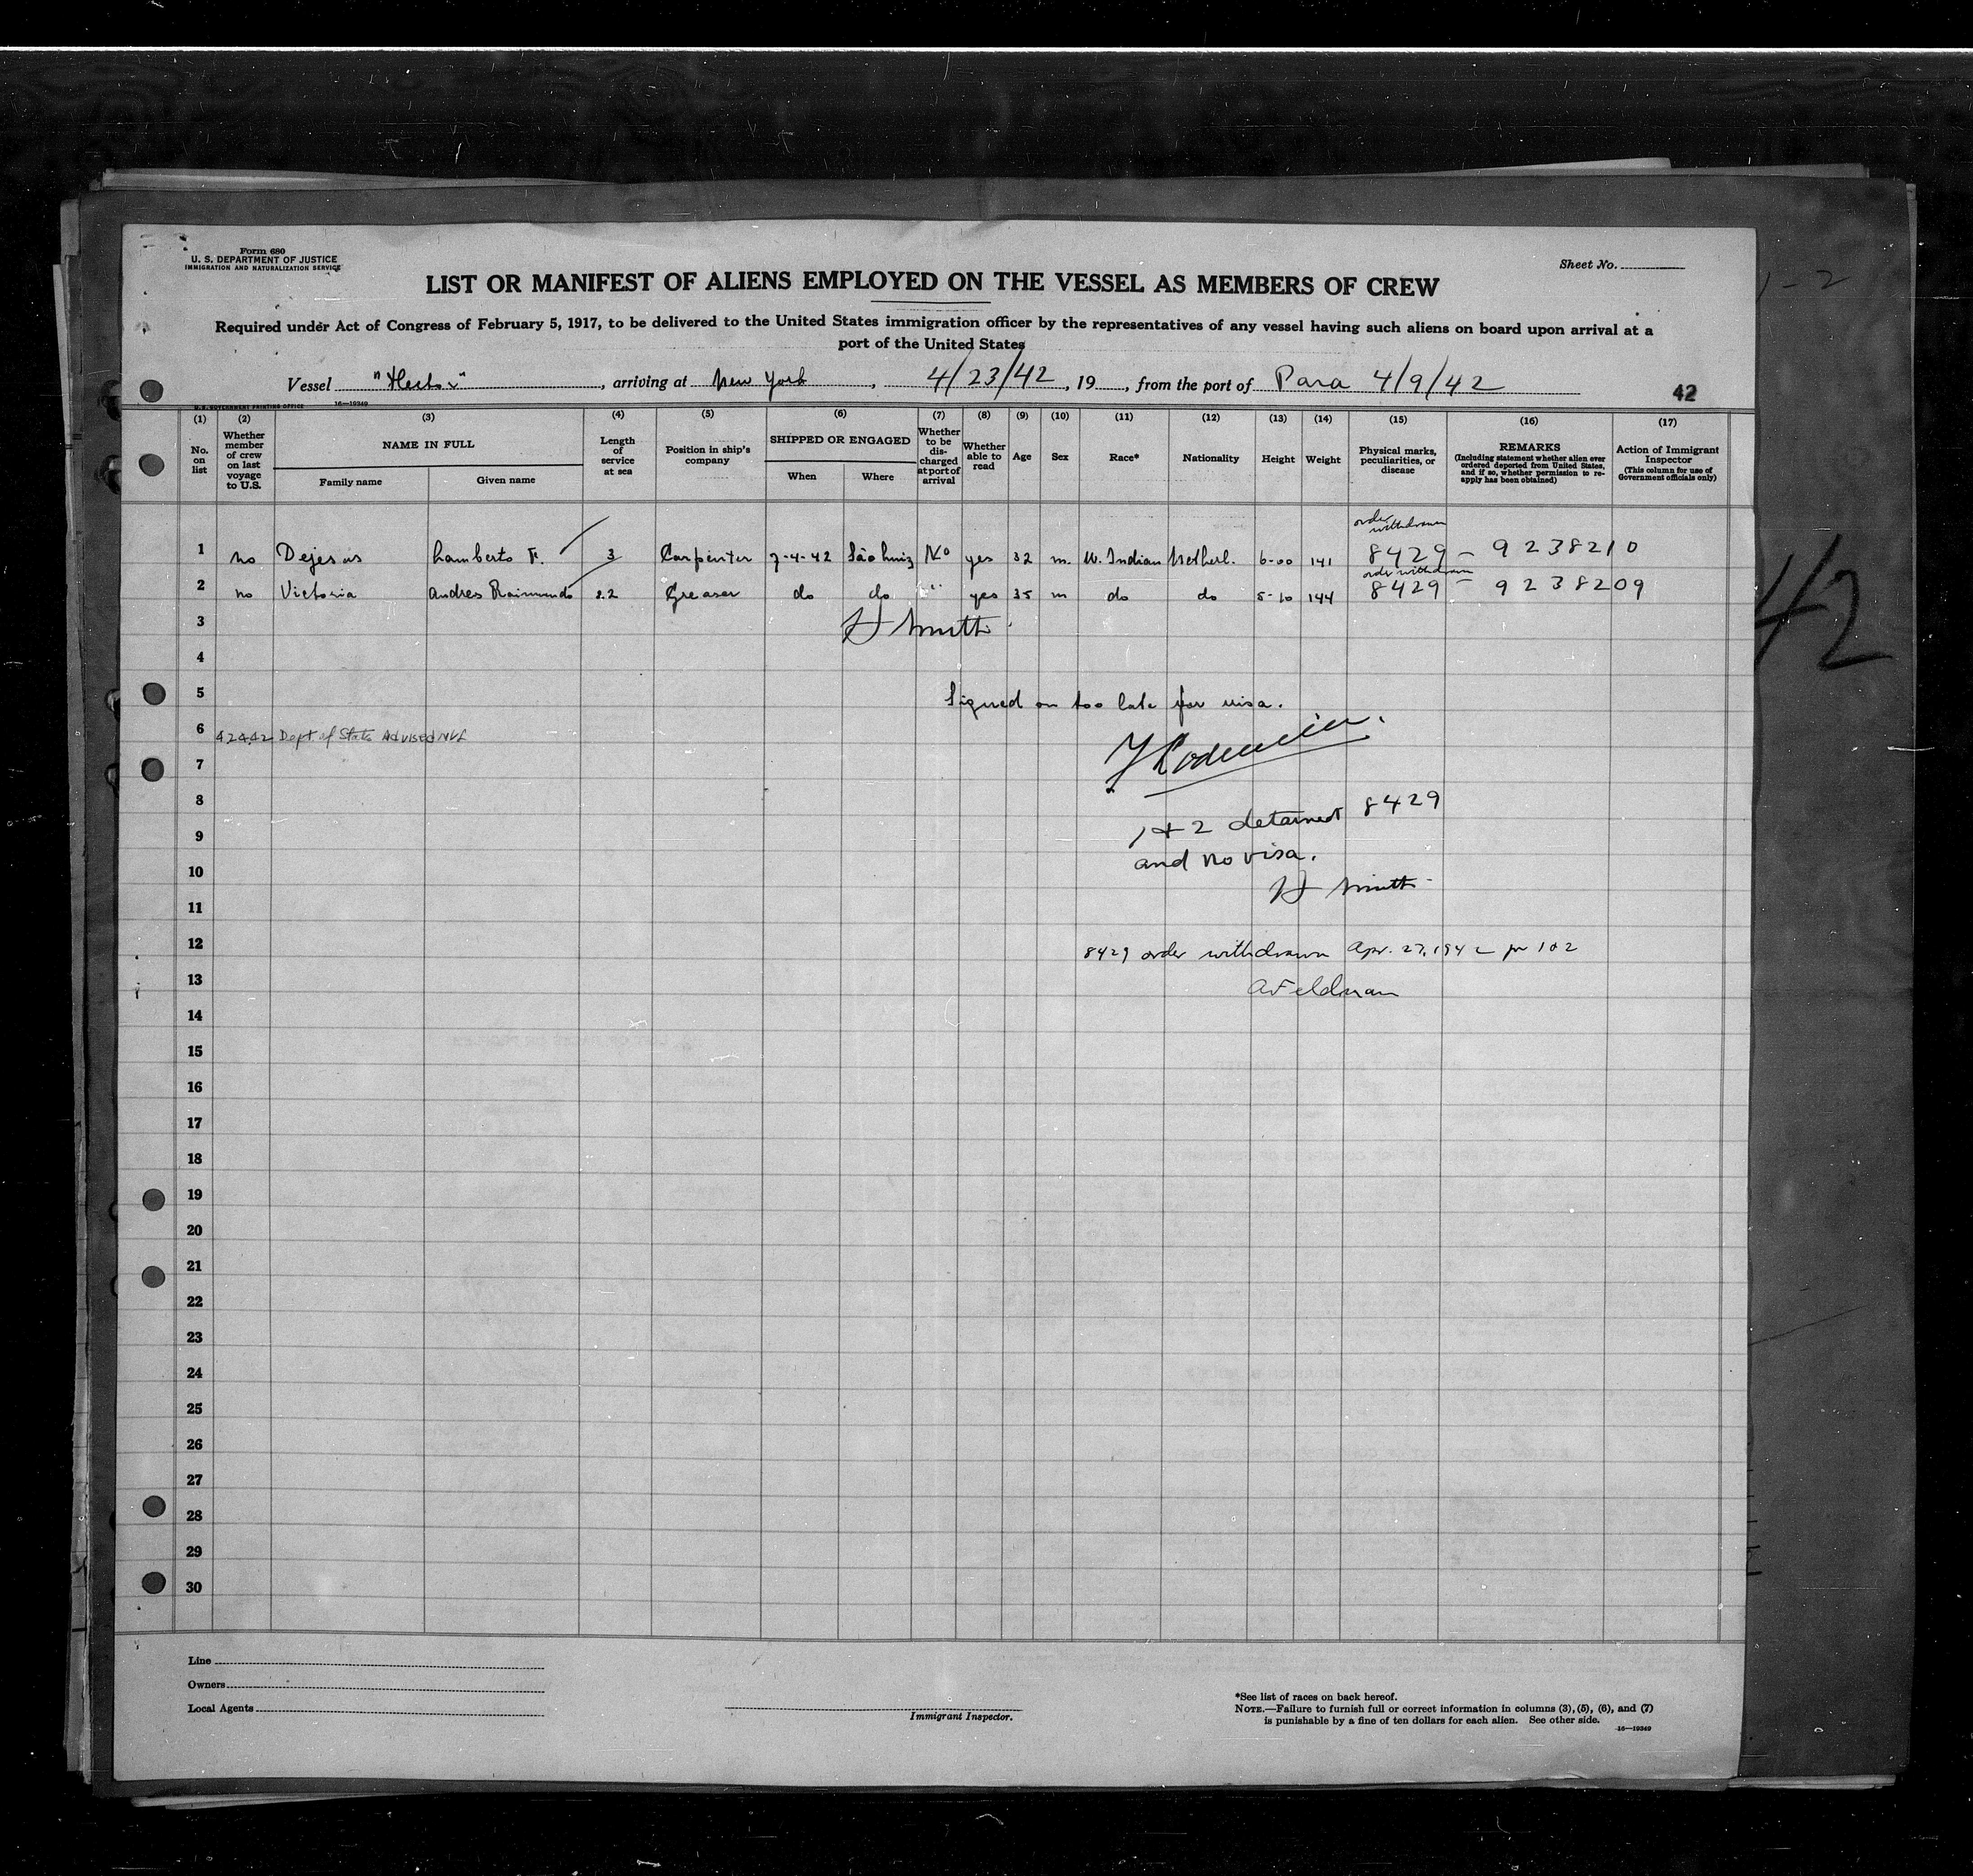 Form 680
U. S. DEPARTMENT OF JUSTICE
IMMIGRATION AND NATURALIZATION SERVICE
Sheet No.
LIST OR MANIFEST OF ALIENS EMPLOYED ON THE VESSEL AS MEMBERS OF CREW
1-2
Required under Act of Congress of February 5, 1917, to be delivered to the United States immigration officer by the representatives of any vessel having such aliens on board upon arrival at a
port of the United States
Vessel "Hector", arriving at New York, 4/23/42, 19, from the port of Para 4/9/42
42
U. S. GOVERNMENT PRINTING OFFICE 16—19349
(1) (2) (3) (4) (5) (6) (7) (8) (9) (10) (11) (12) (13) (14) (15) (16) (17)
No. on list
Whether member of crew on last voyage to U.S.
NAME IN FULL
Family name Given name
Length of service at sea
Position in ship's company
SHIPPED OR ENGAGED
When Where
Whether to be discharged at port of arrival
Whether able to read
Age
Sex
Race*
Nationality
Height
Weight
Physical marks, peculiarities, or disease
REMARKS
(Including statement whether alien ever ordered deported from United States, and if so, whether permission to reapply has been obtained)
Action of Immigrant Inspector
(This column for use of Government officials only)
order withdrawn
1 no Dejesus Lamberto F. 3 Carpenter 7-4-42 São Luiz No yes 32 m. W. Indian Netherl. 6-00 141 8429 - 9238210
order withdrawn
2 no Victoria Andres Raimundo 2.2 Greaser do do " yes 35 m do do 5-10 144 8429 - 9238209
3 H Smith
42
4
5 Signed on too late for visa.
6 42442 Dept of State Advised
7
8 1 & 2 detained 8429
9 and no visa.
10 H Smith
11
12 8429 order withdrawn Apr. 27, 1942 for 1 & 2
13 A Feldman
14
15
16
17
18
19
20
21
22
23
24
25
26
27
28
29
30
Line
Owners
Local Agents
Immigrant Inspector.
*See list of races on back hereof.
NOTE.—Failure to furnish full or correct information in columns (3), (5), (6), and (7)
is punishable by a fine of ten dollars for each alien. See other side.
16—19349